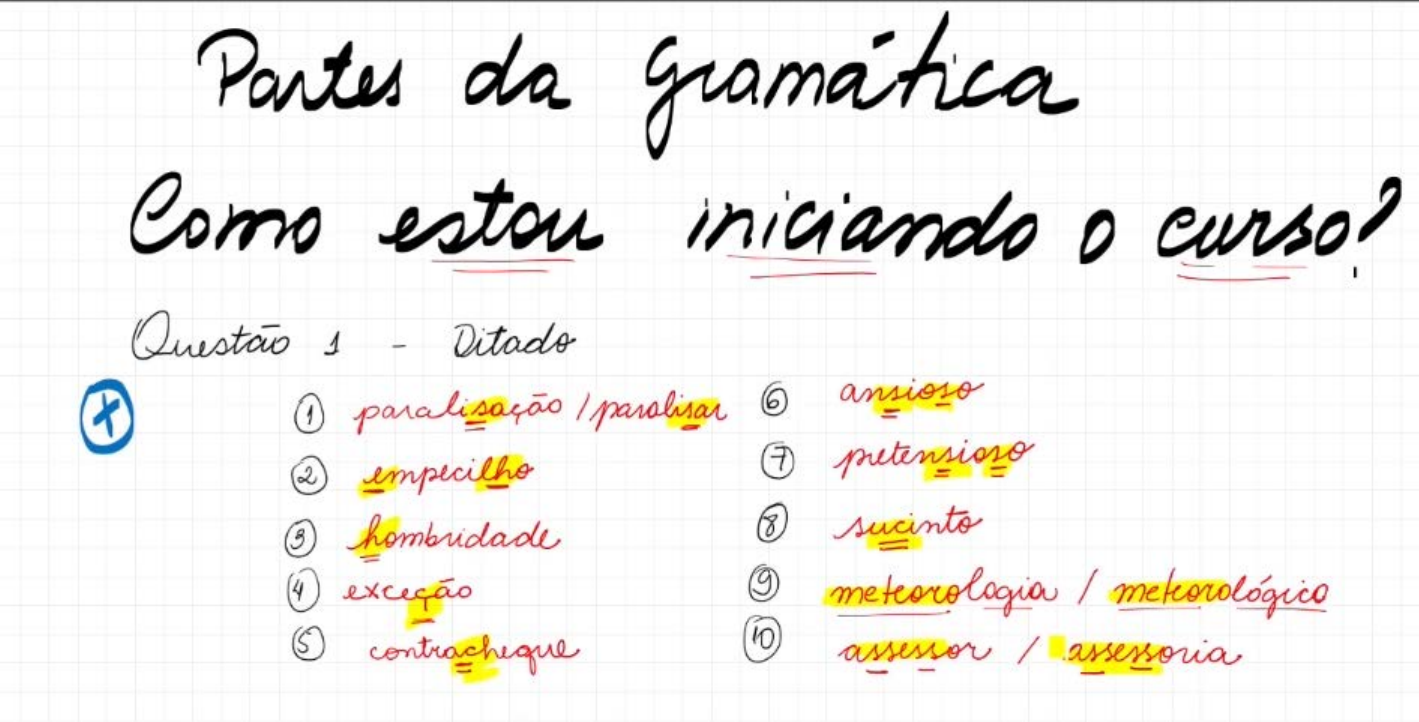 Partes da gramática
Como estou iniciando o curso?
Questão 1 - Ditado
+
1 paralisação / paralisar
2 empecilho
3 hombridade
4 exceção
5 contracheque
6 ansioso
7 pretensioso
8 sucinto
9 meteorologia / meteorológico
10 assessor / assessoria